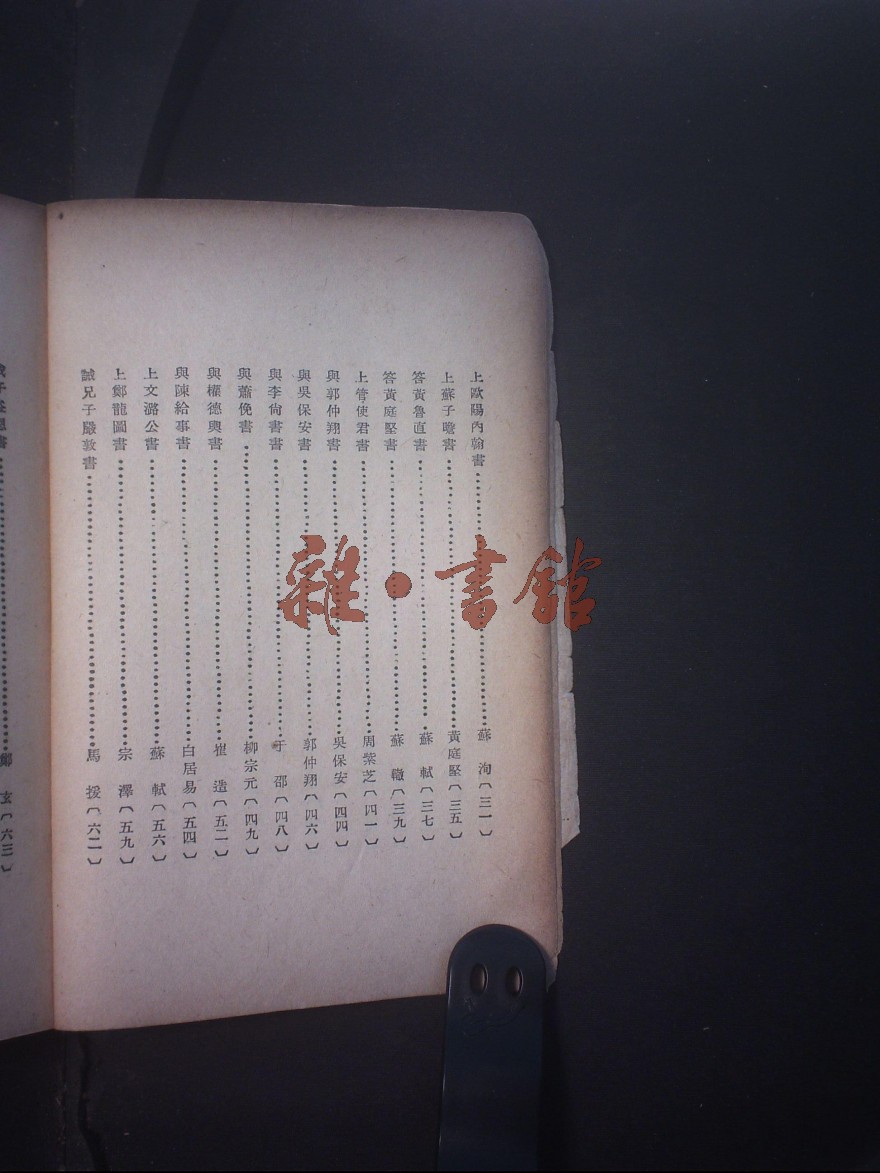 上歐陽內翰書……蘇 洵〔三一〕
上蘇子瞻書……黃庭堅〔三五〕
答黃魯直書……蘇 軾〔三七〕
答黃庭堅書……蘇 轍〔三九〕
上管使君書……周紫芝〔四一〕
與郭仲翔書……吳保安〔四四〕
與吳保安書……郭仲翔〔四六〕
與李尙書書……于 邵〔四八〕
與蕭俛書……柳宗元〔四九〕
與權德輿書……崔 造〔五二〕
與陳給事書……白居易〔五四〕
上文潞公書……蘇 軾〔五六〕
上鄭龍圖書……宗 澤〔五九〕
誡兄子嚴敦書……馬 援〔六二〕
書……鄭 玄〔六三〕
雜·書館